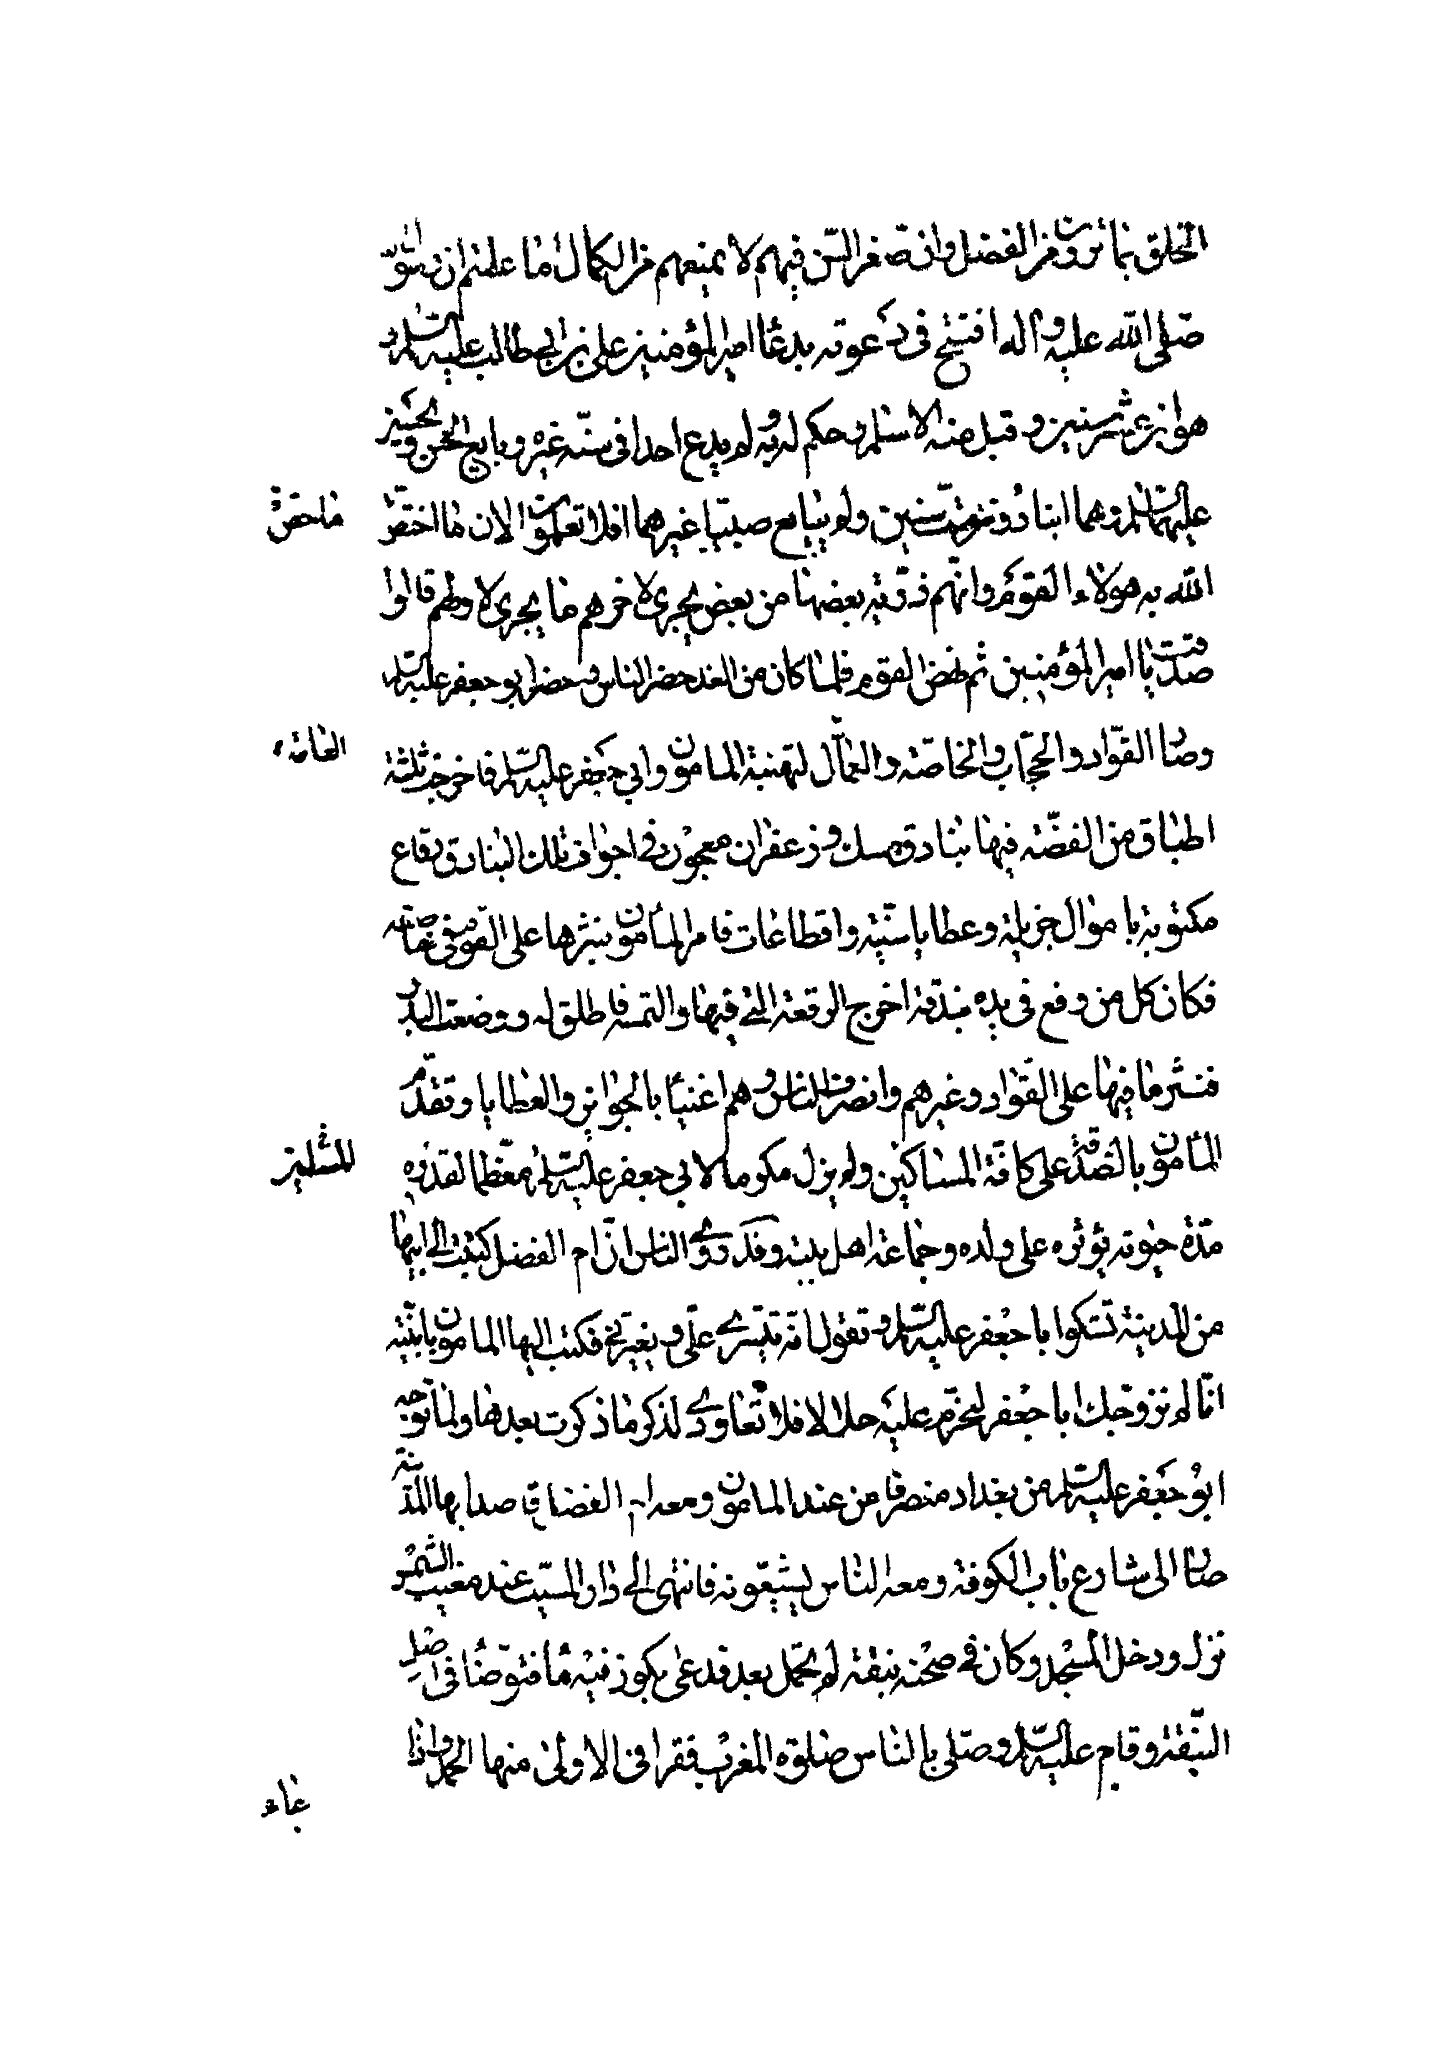 الخلق بما ترون من الفضل وان صغر السن فيهم لا يمنعهم من الكمال اما علمتم ان رسول الله
صلى الله عليه وآله افتتح في دعوته بدعا امير المؤمنين علي بن ابي طالب عليه السلم و
هو ابن عشر سنين وقبل منه الاسلم وحكم له به ولم يدع احدا في سنه غيره وبايع الحسن والحسين
عليهما السلم وهما ابنا دون ست سنين ولم يبايع صبيا غيرهما افلا تعلمون الان ما اختص
ما خص
الله به هولاء القوم وانهم ذرية بعضها من بعض يجرى لاخرهم ما يجرى لاولهم قالوا
صدقت يا امير المؤمنين ثم نهض القوم فلما كان من الغد حضر الناس وحضر ابو جعفر عليه السلم
وصار القواد والحجاب والخاصة والعمال لتهنية المامون وابي جعفر عليه السلم فاخرجت ثلثة
العامة
اطباق من الفضة فيها بنادق مسك وزعفران معجون في اجواف تلك البنادق رقاع
مكتوبة باموال جزيلة وعطايا سنية واقطاعات فامر المأمون بنثرها على القوم في خاصته
فكان كل من وقع في يده بندقة اخرج الرقعة التي فيها والتمسه فاطلق له ووضعت البدر
فنثر ما فيها على القواد وغيرهم وانصرف الناس وهم اغنيا بالجوايز والعطايا وتقدم
المأمون بالصدقة على كافة المساكين ولم يزل مكرما لابي جعفر عليه السلم معظما لقدره
المسلمين
مدة حيوته يؤثره على ولده وجماعة اهل بيته وقد روى الناس ان ام الفضل كتبت الى ابيها
من المدينة تشكوا ابا جعفر عليه السلم وتقول انه يتسرى علي ويغيرني فكتب اليها المامون يا بنية
انا لم نزوجك ابا جعفر لنحرم عليه حلالا فلا تعاودى لذكر ما ذكرت بعدها ولما توجه
ابو جعفر عليه السلم من بغداد منصرفا من عند المامون ومعه ام الفضل قاصدا بها المدينة
صار الى شارع باب الكوفة ومعه الناس يشيعونه فانتهى الى دار المسيب عند مغيب الشمس
نزل ودخل المسجد وكان في صحنه نبقة لم تحمل بعد فدعى بكوز فيه ما فتوضا في اصل
النبقة وقام عليه السلم وصلى بالناس صلوة المغرب فقرا في الاولى منها الحمد واذا
جاء